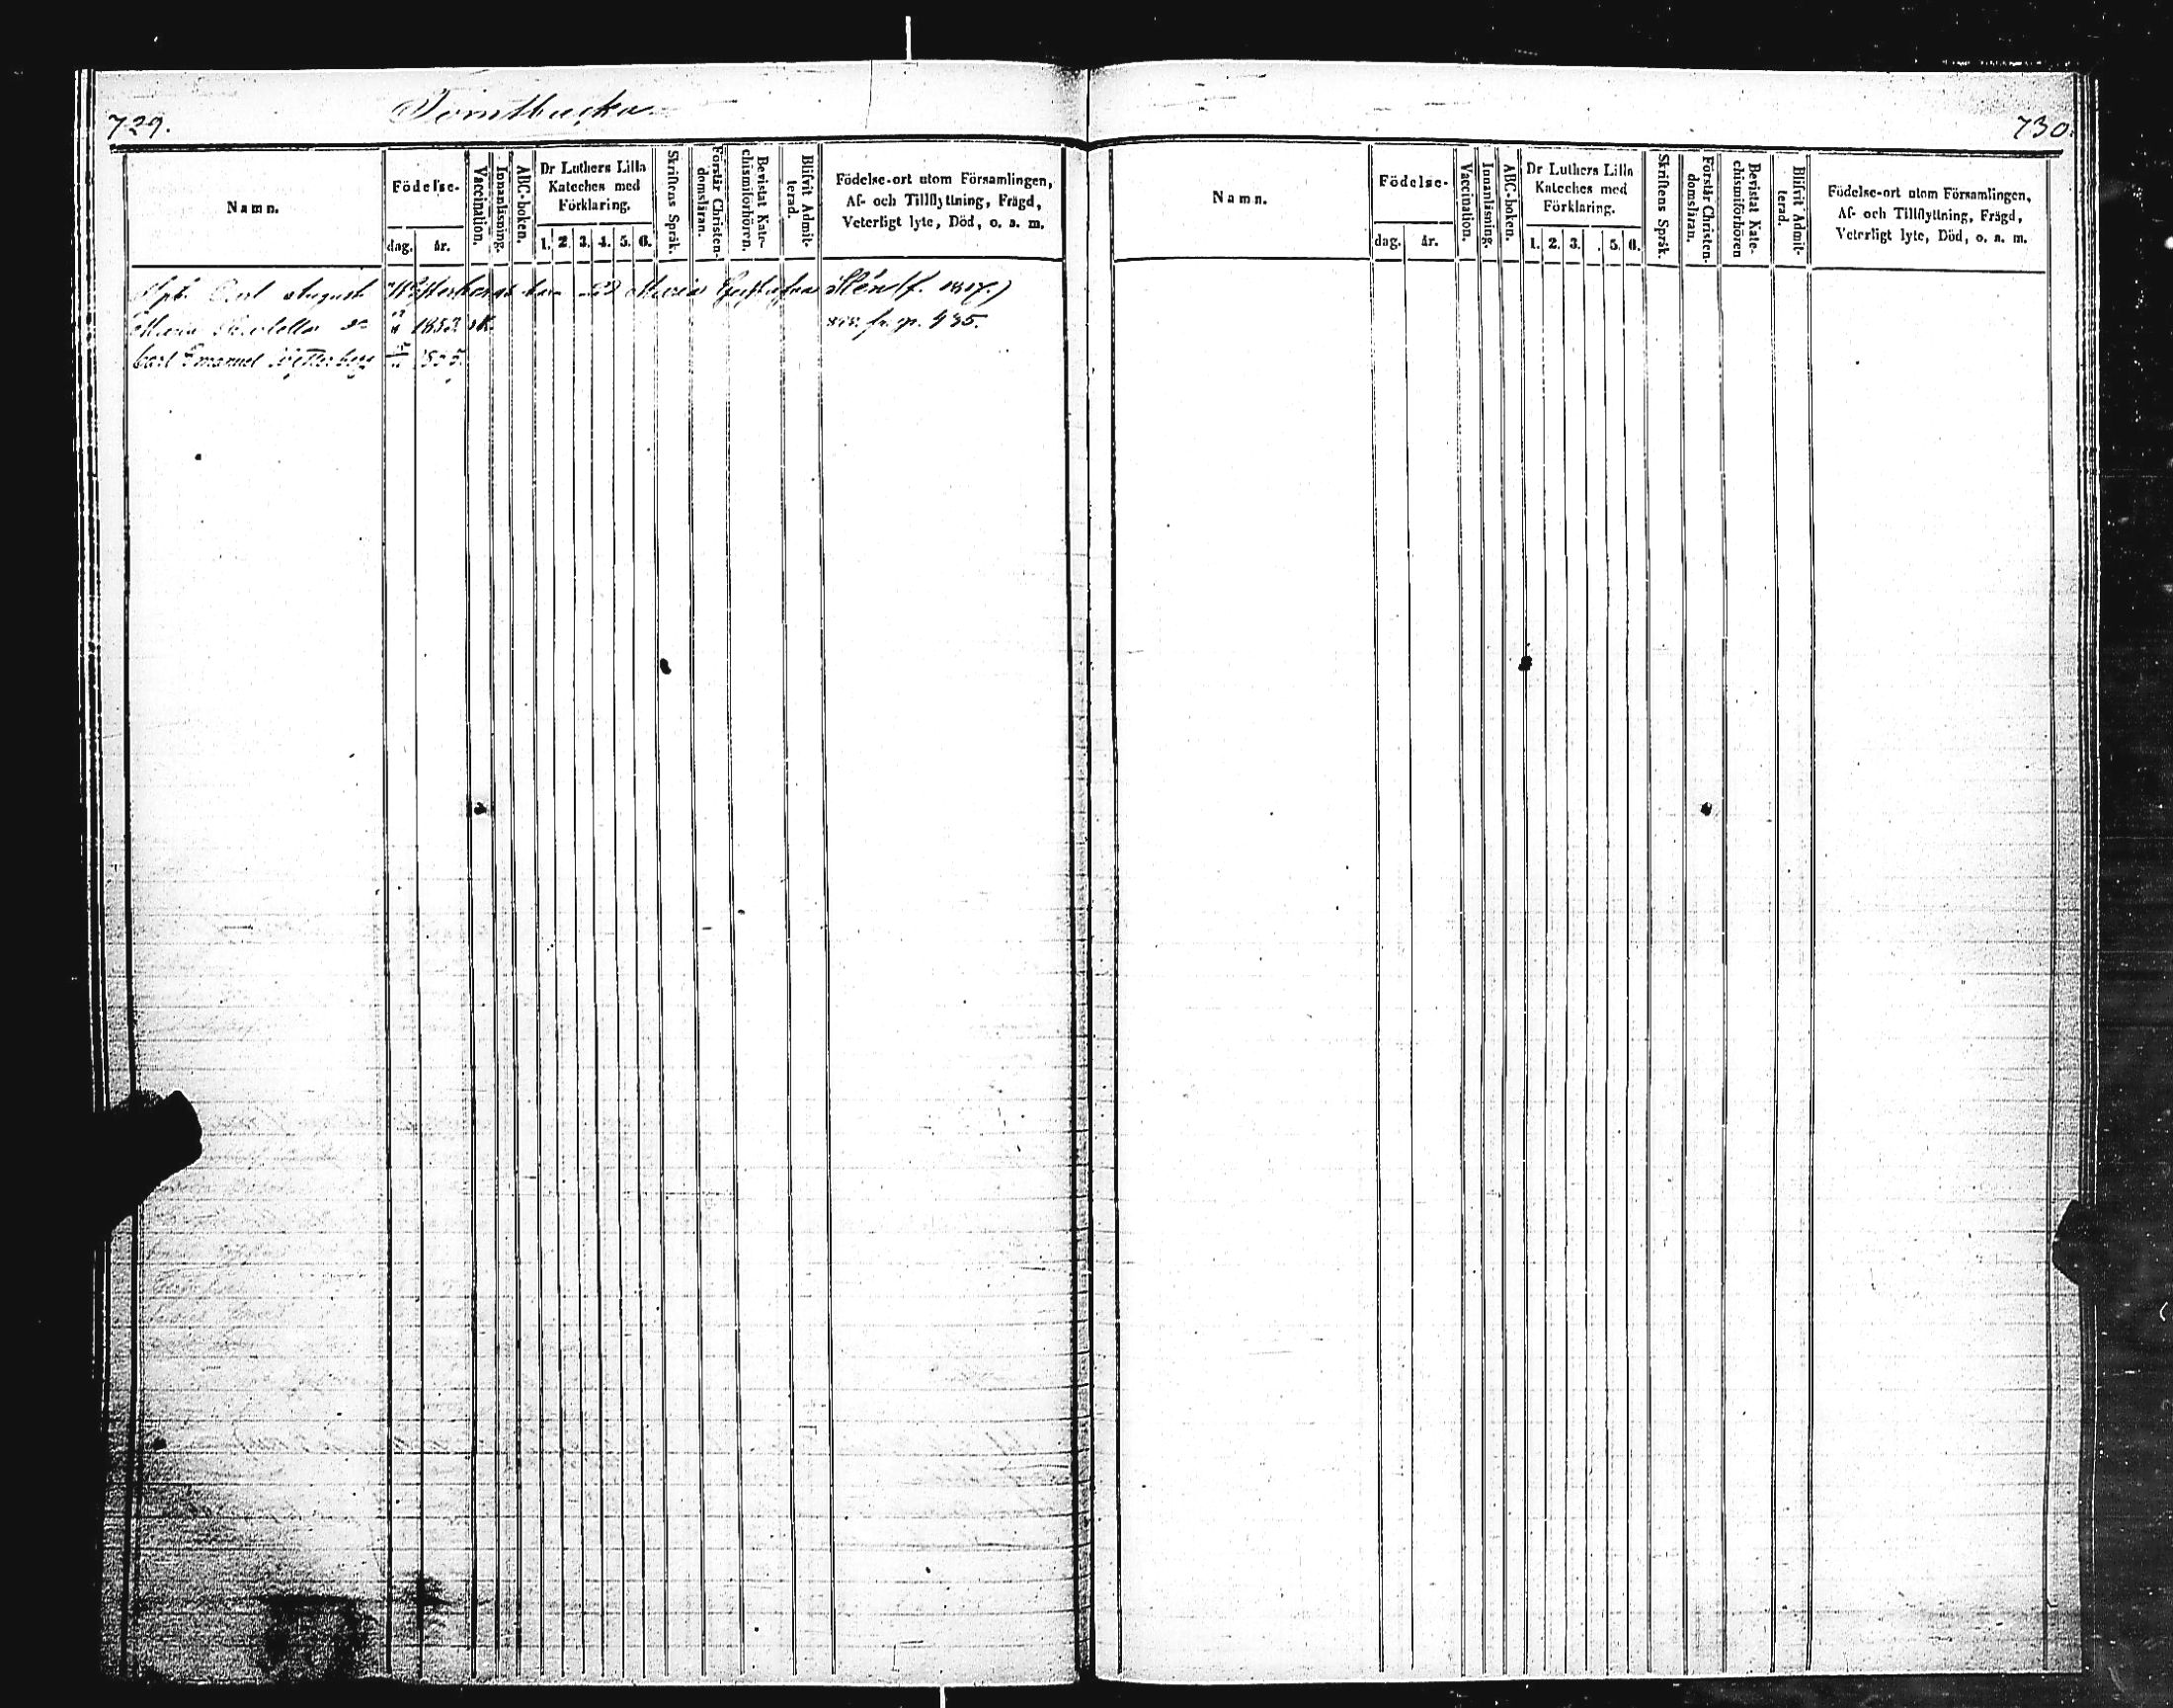 729.
730.
Namn.
Födelse-
dag. år.
Vaccination.
Innanläsning.
ABC-boken.
Dr Luthers Lilla
Kateches med
Förklaring.
1. 2. 3. 4. 5. 6.
Skriftens Språk.
Förstår Christen-
domsläran.
Bevistat Kate-
chismiförhören.
Blifvit Admit-
terad.
Födelse-ort utom Församlingen,
Af- och Tillflyttning, Frägd,
Veterligt lyte, Död, o. s. m.
Carl August barn Maria
Maria 1852. fr. p. 435.
Carl Emanuel
Namn.
Födelse-
dag. år.
Vaccination.
Innanläsning.
ABC-boken.
Dr Luthers Lilla
Kateches med
Förklaring.
1. 2. 3. . 5. 6.
Skriftens Språk.
Förstår Christen-
domsläran.
Bevistat Kate-
chismiförhören
Blifvit Admit-
terad.
Födelse-ort utom Församlingen,
Af- och Tillflyttning, Frägd,
Veterligt lyte, Död, o. s. m.